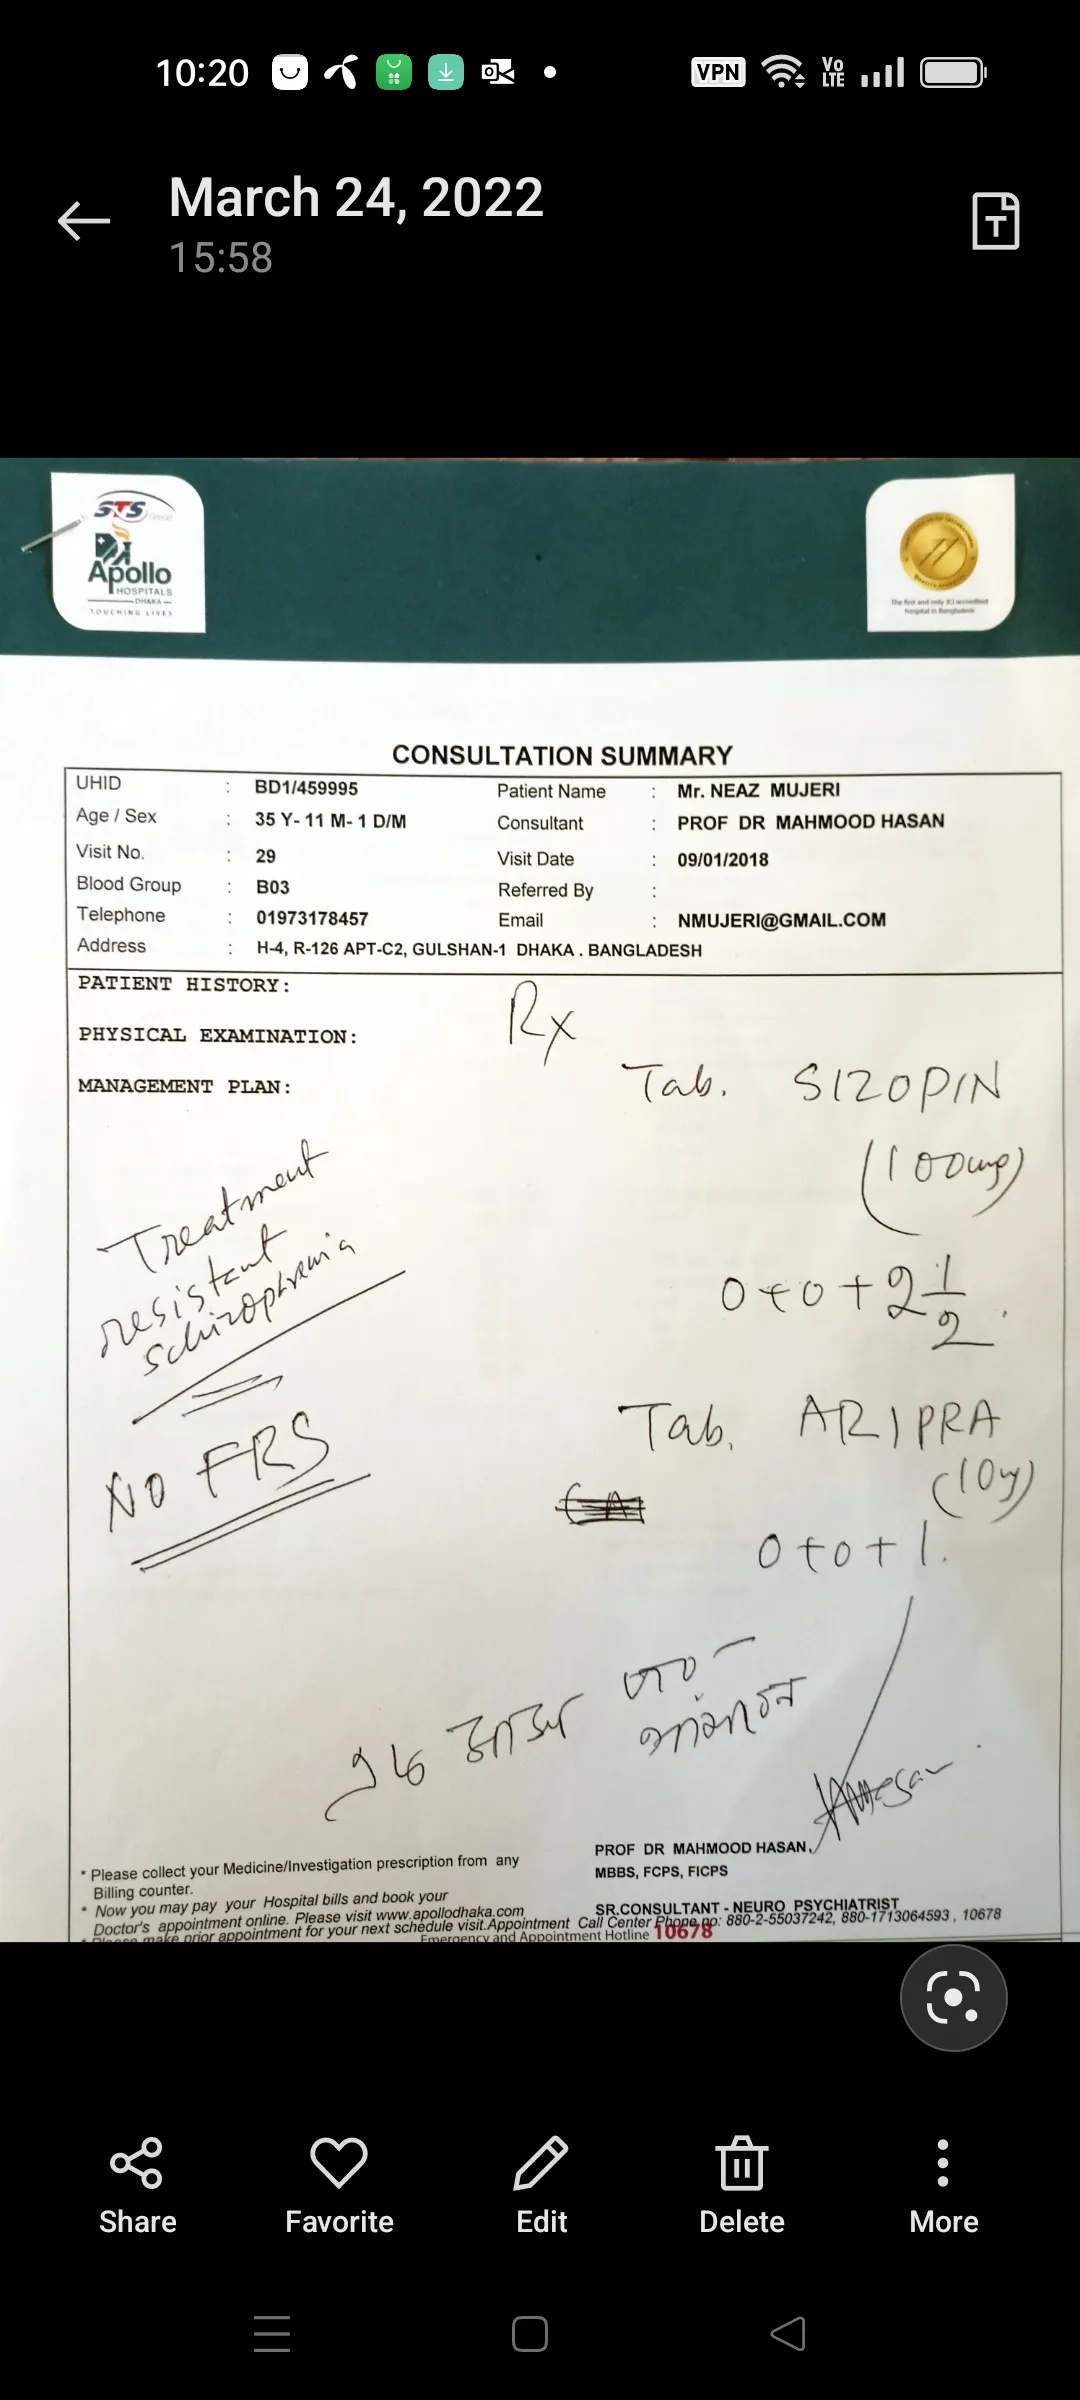 10:20
VPN
Vo LTE
March 24, 2022
T
15:58
STS
Apollo
HOSPITALS
DHAKA
TOUCHING LIVES
The first and only JCI accredited
hospital in Bangladesh
CONSULTATION SUMMARY
UHID : BD1/459995 Patient Name : Mr. NEAZ MUJERI
Age / Sex : 35 Y- 11 M- 1 D/M Consultant : PROF DR MAHMOOD HASAN
Visit No. : 29 Visit Date : 09/01/2018
Blood Group : B03 Referred By :
Telephone : 01973178457 Email : NMUJERI@GMAIL.COM
Address : H-4, R-126 APT-C2, GULSHAN-1 DHAKA . BANGLADESH
PATIENT HISTORY:
Rx
PHYSICAL EXAMINATION:
MANAGEMENT PLAN:
Tab. SIZOPIN
(100mg)
Treatment
resistant
schizophrenia
0+0+2 1/2
NO FRS
Tab. ARIPRA
(10mg)
0+0+1.
PROF DR MAHMOOD HASAN
MBBS, FCPS, FICPS
* Please collect your Medicine/Investigation prescription from any
Billing counter.
SR.CONSULTANT - NEURO PSYCHIATRIST
* Now you may pay your Hospital bills and book your
Doctor's appointment online. Please visit www.apollodhaka.com
* Please make prior appointment for your next schedule visit.Appointment Call Center Phone no: 880-2-55037242, 880-1713064593 , 10678
Emergency and Appointment Hotline 10678
Share
Favorite
Edit
Delete
More